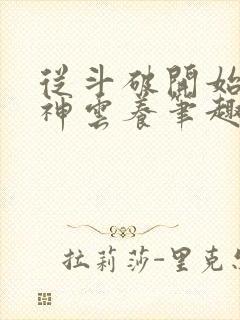 從斗破開始
神雲養筆趣
拉莉莎-里克